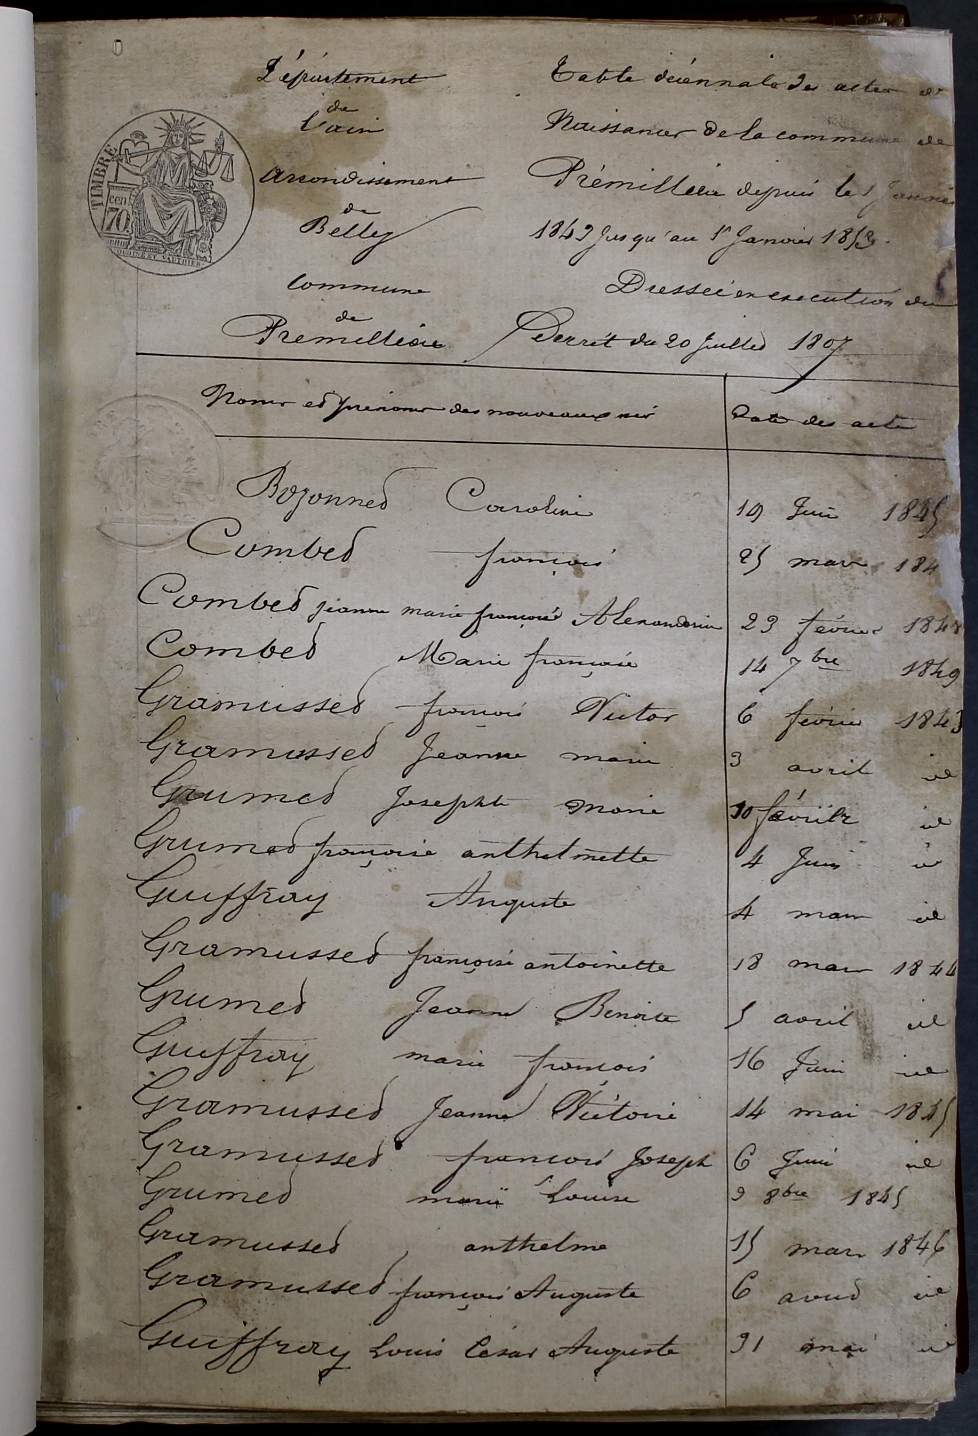 Département
de
l'ain
arrondissement
de
Belley
Commune
de
Prémillieu
Table décennale des actes de
Naissances de la commune de
Prémillieu depuis le 1 Janvier
1843 Jusqu'au 1er Janvier 1853.
Dressée en execution du
Decret du 20 Juillet 1807
TIMBRE
70 cen
Noms et prénoms des nouveaux nés Date des actes
Bozonnet Caroline 19 Juin 1845
Combet françois 25 mars 184
Combet jeanne marie françoise Alexandrine 23 février 1848
Combet Marie françoise 14 7bre 1849
Gramusset françois Victor 6 février 1843
Gramusset Jeanne marie 3 avril id
Grumet Josephte Marie 10 février id
Grumet françoise anthelmette 4 Juin id
Guiffray Auguste 4 mars id
Gramusset françoise antoinette 18 mars 1844
Grumet Jeanne Benoite 5 avril id
Guiffray marie françois 16 Juin id
Gramusset Jeanne Victoire 14 mai 1845
Gramusset françois Joseph 6 Juin id
Grumet marie Louise 9 8bre 1845
Gramusset anthelme 15 mars 1846
Gramusset françois Auguste 6 avril id
Guiffray Louis César Auguste 31 mai id